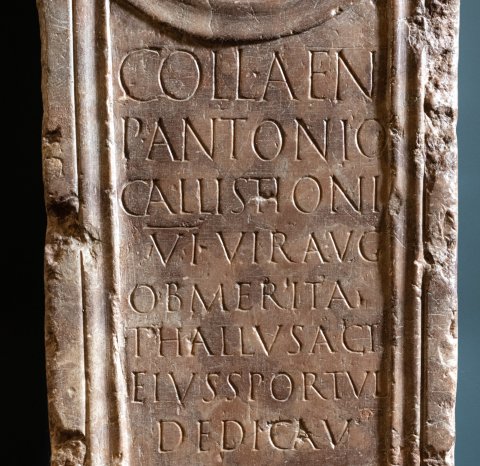 COLL·AEN
P·ANTONIO
CALLISTIONI
VI·VIR AVG
OB MERITA
THALLVS ACT
EIVS SPORTVL
DEDICAV